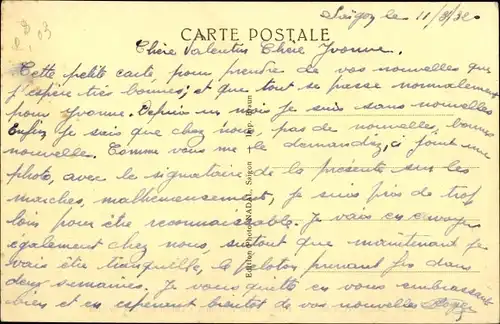 Saïgon le 11/8/32
CARTE POSTALE
Chère Valentin Chère Yvonne.
Cette petite carte, pour prendre de vos nouvelles que
j'espère très bonnes, et que tout se passe normalement
pour Yvonne. Depuis un mois je suis sans nouvelles
Enfin je sais que chez nous, pas de nouvelles, bonnes
nouvelle. Comme vous me le demandiez, ci joint une
photo, avec le signataire de la présente sur les
marches, malheureusement, je suis pris de trop
loin pour être reconnaissable. Je vais en envoyer
également chez nous, surtout que maintenant je
vais être tranquille, le peloton prenant fin dans
deux semaines. Je vous quitte en vous embrassant
bien et en esperant bientot de vos nouvelles
Edition Photo NADAL, Saigon